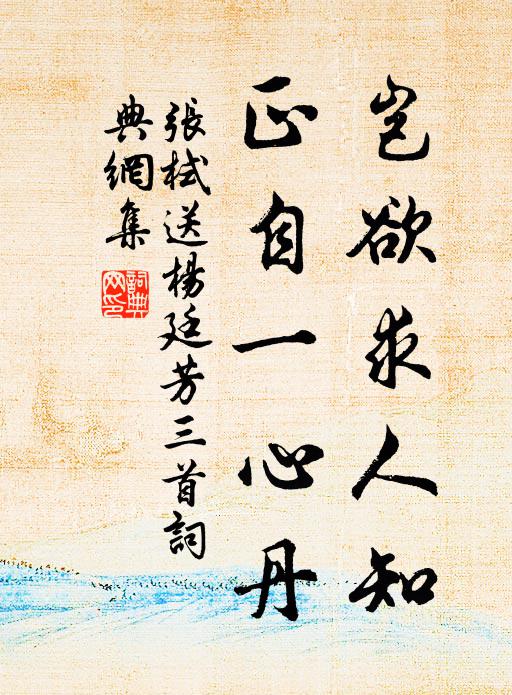 豈欲求人知
正自一心丹
張栻送楊廷芳三首詞
典網集
詞典網印